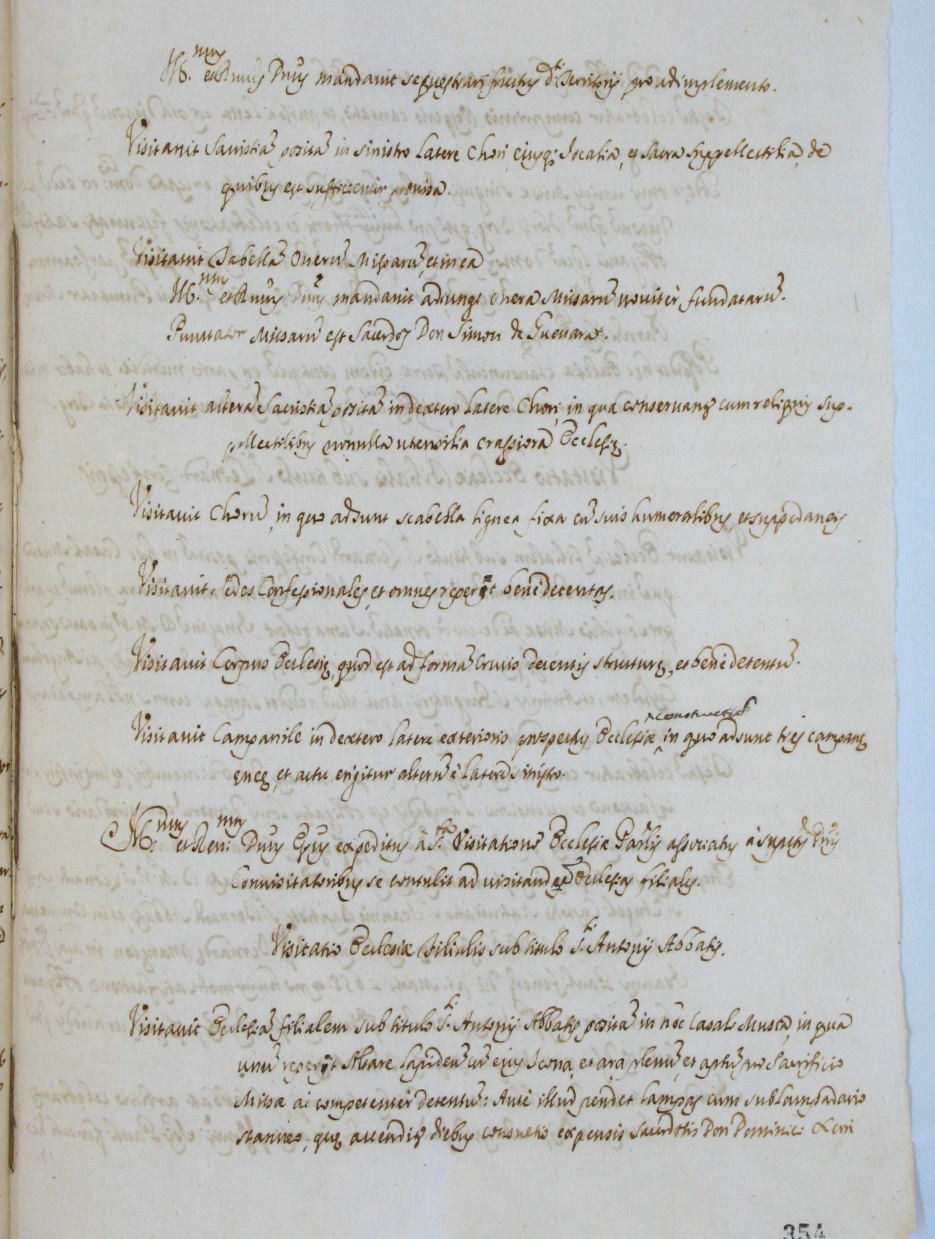 Ill.mus et Rmus Dnus mandavit sequestrari fructus d.ti territorij pro adimplemento.
Visitavit Sacristiã positã in sinistro latere Chori, ejusq; Jocalia, et sacra suppellectilia, de
quibus est sufficienter provisa.
Visitavit Tabellã Onerũ Missarũ, et in ea
Ill.mus et Rmus Dnus mandavit adjungi onera Missarũ noviter fundatarũ.
Punctator Missarũ est Sacerdos Don Simon de Guevara.
Visitavit alterã Sacristiã positã in dextero latere Chori, in qua conservantur cum reliquis sup-
pellectilibus nonnulla utensilia crassiora Ecclesiæ.
Visitavit Chorũ, in quo adsunt scabella lignea fixa cũ suis humeralibus, et suppedaneis
Visitavit sedes Confessionales, et omnes reperijt bene detentas.
Visitavit Corpus Ecclesiæ, quod est ad formã Crucis decentis structuræ, et bene detentũ.
constructũ
Visitavit Campanile in dextero latere exterioris prospectus Ecclesiæ ^ in quo adsunt tres campanæ
eneæ, et actu erigitur alterũ è latere sinistro.
Ill.mus et Rev.mus Dnus Epus expeditus à S.ta Visitatione Ecclesiæ Parlis associatus à supctis Dnis
Convisitatoribus se contulit ad visitandas Ecclesias filiales.
Visitatio Ecclesiæ filialis sub titulo S.ti Antonij Abbatis.
Visitavit Ecclesiã filialem sub titulo S.ti Antonij Abbatis positã in hoc Casali Musta, in qua
unũ reperijt Altare lapideũ cũ ejus Icona, et ara plenũ, et aptũ pro Sacrificio
Missæ ac competenter detentũ: Ante illud pendet lampas cum sublampadario
stanneo, quæ accenditur diebus consuetis expensis Sacerdotis Don Dominici
354